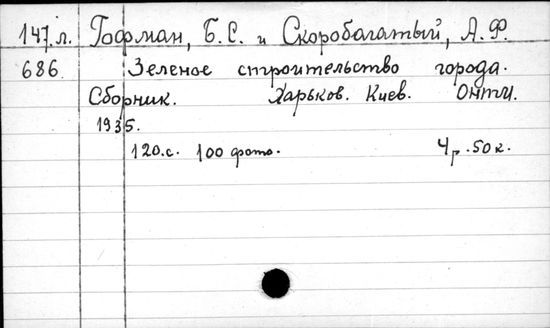 147.л. Гофман, Б.С. и Скоробагатый, А.Ф.
686. Зеленое строительство города.
Сборник. Харьков. Киев. ОНТИ.
1935.
120.с. 100 фото. 4р.50к.